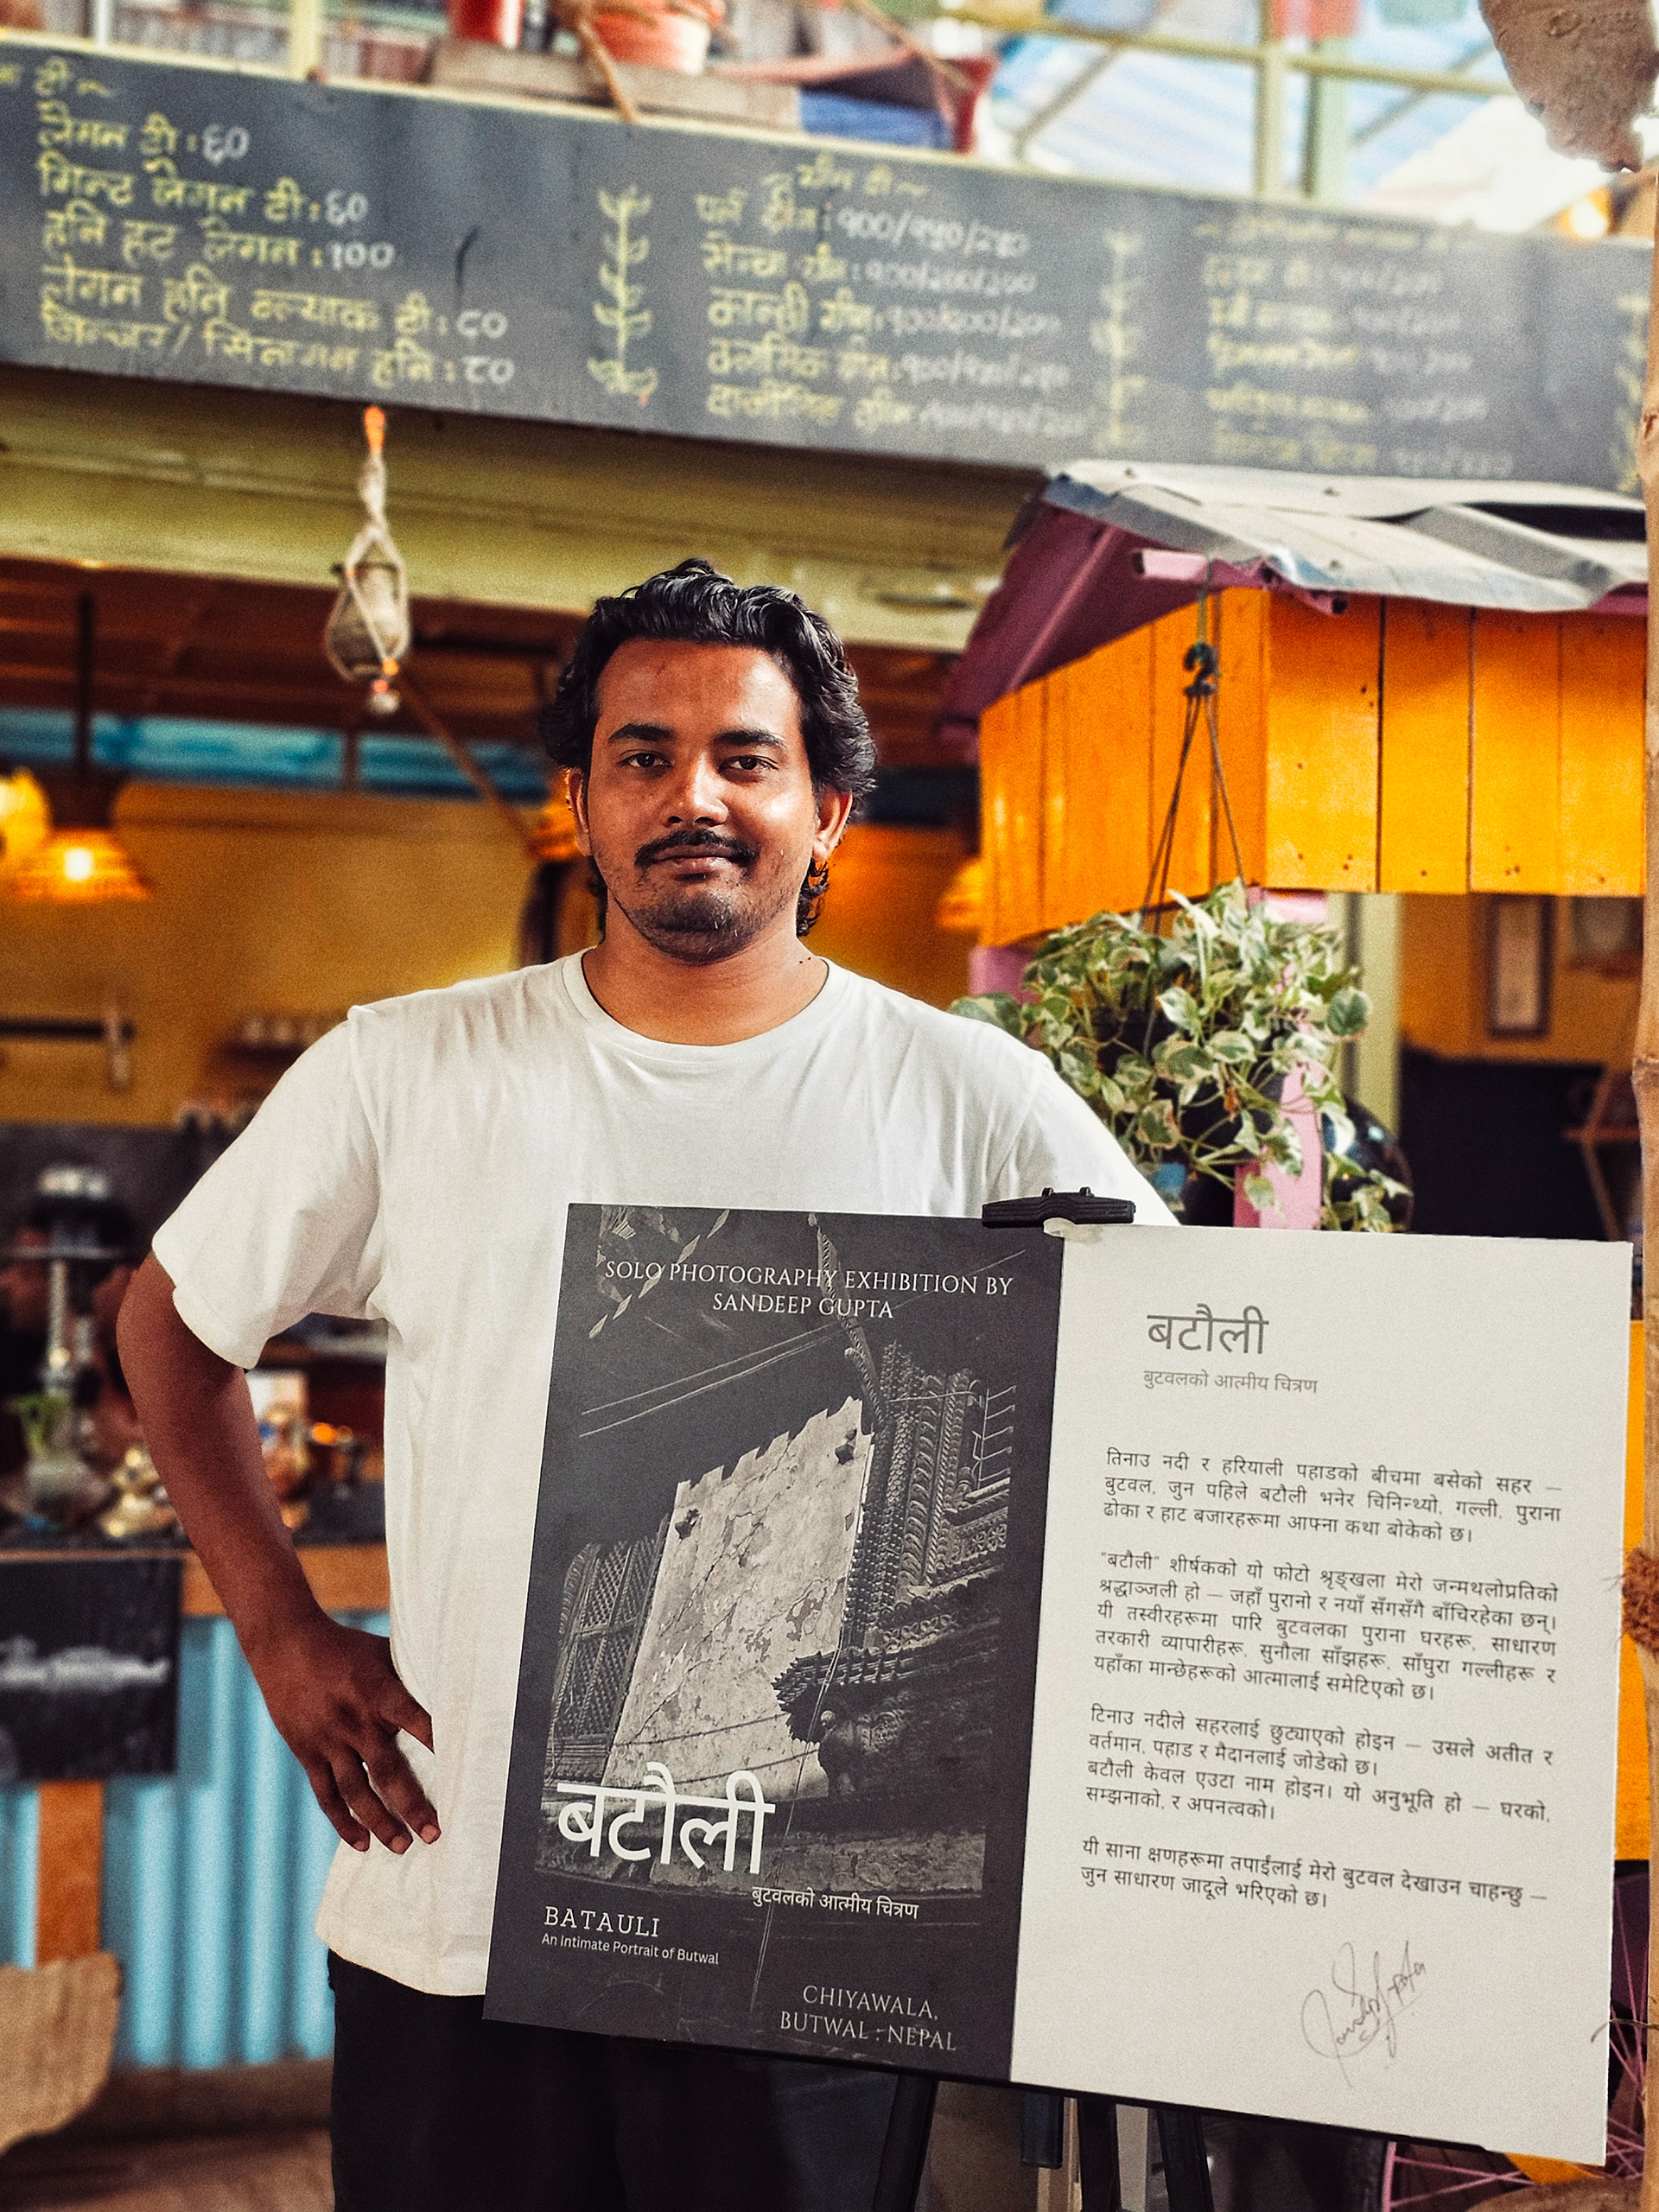 लेमन टी : ६०
मिन्ट लेमन टी : ६०
हनि हट लेमन : १००
लेमन हनि ब्ल्याक टी : ८०
जिन्जर / सिनामन हनि : ८०
ग्रीन टी
SOLO PHOTOGRAPHY EXHIBITION BY
SANDEEP GUPTA
बटौली
बुटवलको आत्मीय चित्रण
BATAULI
An Intimate Portrait of Butwal
CHIYAWALA,
BUTWAL : NEPAL
बटौली
बुटवलको आत्मीय चित्रण
तिनाउ नदी र हरियाली पहाडको बीचमा बसेको सहर —
बुटवल, जुन पहिले बटौली भनेर चिनिन्थ्यो, गल्ली, पुराना
ढोका र हाट बजारहरूमा आफ्ना कथा बोकेको छ।
"बटौली" शीर्षकको यो फोटो श्रृङ्खला मेरो जन्मथलोप्रतिको
श्रद्धाञ्जली हो — जहाँ पुरानो र नयाँ सँगसँगै बाँचिरहेका छन्।
यी तस्वीरहरूमा पारि बुटवलका पुराना घरहरू, साधारण
तरकारी व्यापारीहरू, सुनौला साँझहरू, साँघुरा गल्लीहरू र
यहाँका मान्छेहरूको आत्मालाई समेटिएको छ।
टिनाउ नदीले सहरलाई छुट्याएको होइन — उसले अतीत र
वर्तमान, पहाड र मैदानलाई जोडेको छ।
बटौली केवल एउटा नाम होइन। यो अनुभूति हो — घरको,
सम्झनाको, र अपनत्वको।
यी साना क्षणहरूमा तपाईंलाई मेरो बुटवल देखाउन चाहन्छु —
जुन साधारण जादूले भरिएको छ।